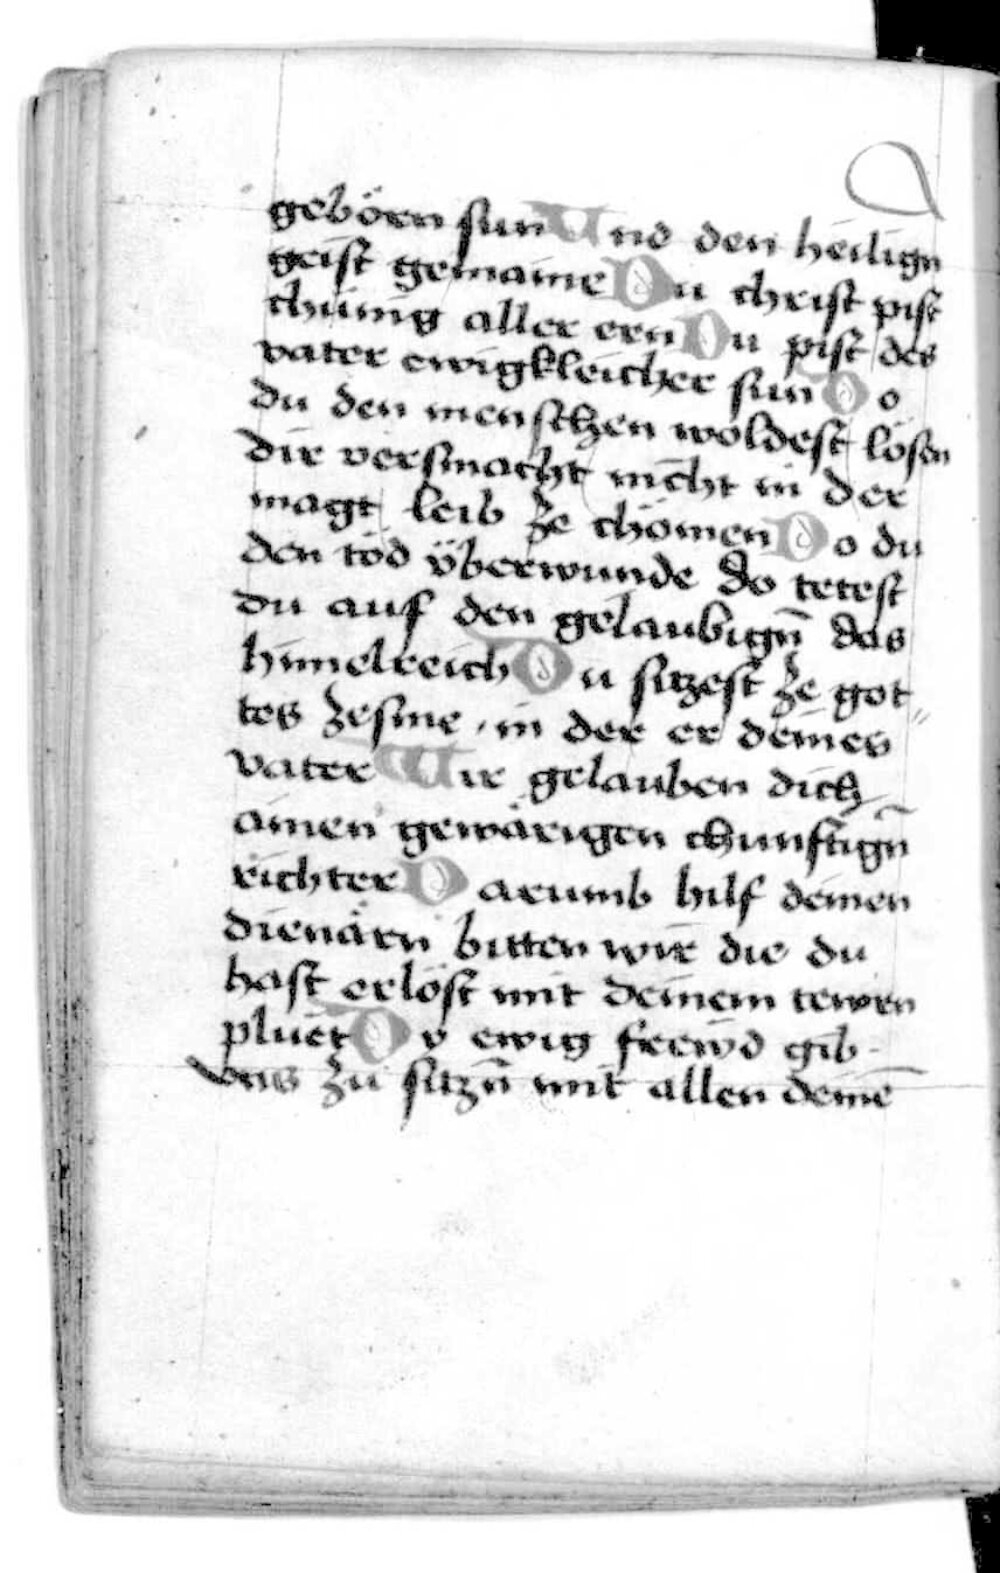 gebörn sun Und den heilign
geist gemaine Du christ pist
chünig aller ern Du pist des
vater ewigkleicher sun Do
du den menschen woldest lösen
dir versmacht nicht in der
magt leib ze chömen Do du
den tod überwunde do tetest
du auf den gelaubign̄ das
himelreich Du sitzest ze got
tes zesme in der er deines
vater Wir gelauben dich
ainen gewärigen chunftign̄
richter Darumb hilf deinen
dienärn bitten wir die du
hast erlöst mit deinem tewrn
pluet Dv ewig frewd gib
vns zu sitzn̄ mit allen deinē